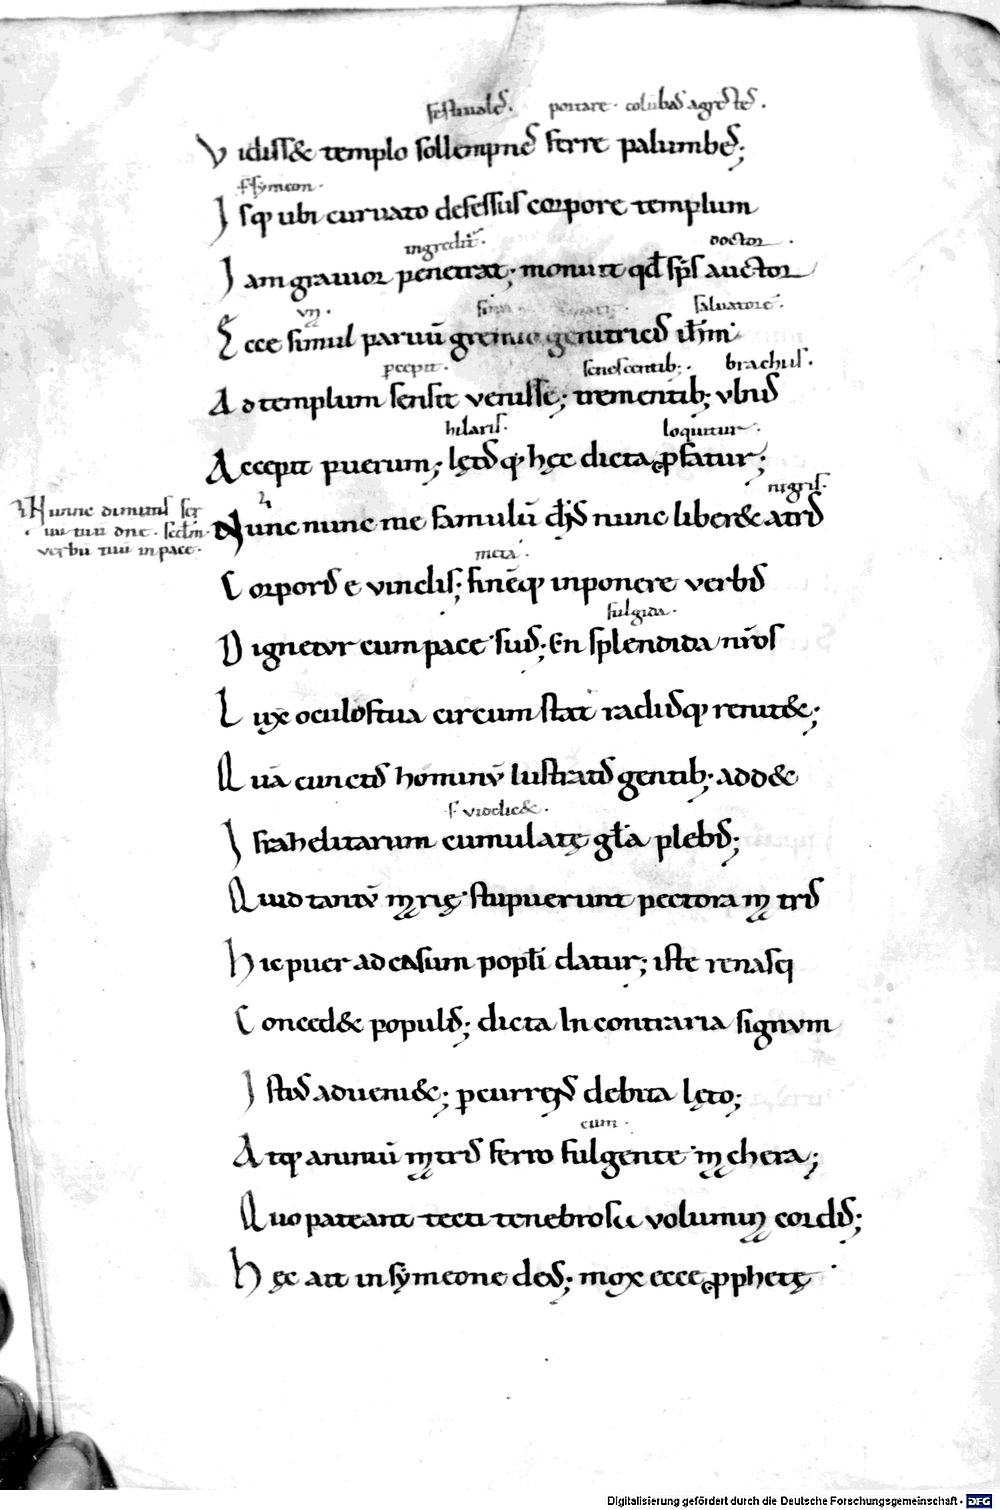 festiuales. portare. colūbas agrestes.
Vidiss& templo sollempnes ferre palumbes;
.s. symeon.
Isq; ubi curuato defessus corpore templum
ingredit̄. doctor.
Iam grauior penetrat; monuit qđ sp̄s auctor
vn̄. saluatorē.
Ecce simul paruū gremio genitricis ih̄m
p̄cepit. senescentib;. brachiis.
Ad templum sensit venisse; trementib; vlnis
hilaris. loquitur.
Accepit puerum; lętus q; hęc dicta p̄fatur;
nigris.
Nunc nunc me famulū d̄s nunc liber& atris
Nunc dimittis ser
uū tuū dn̄e. scd̄m
verbū tuū in pace.
meta.
Corporis e vinclis; finēq; inponere verbis
fulgida.
Dignetur cum pace suis; En splendida nr̄os
Lux oculos tua circumstat radiisq; renid&;
Quā cunctis hominū lustratis gentib; add&
.s. vndelic&.
Israhelitarum cumulatę gl̄a plebis;
Quid tantū Marię stupuerunt pectora matris
Hic puer ad casum popl̄i datur; iste renasci
Conced& populis; dicta In contraria signum
Istius adueni&; p̄currens debita lęto;
cum.
Atq; animū matris ferro fulgente machera;
Quo pateant tecti tenebrosa volumina cordis;
Hęc ait in symeone deus; mox ecce p̄phetę
Digitalisierung gefördert durch die Deutsche Forschungsgemeinschaft - DFG